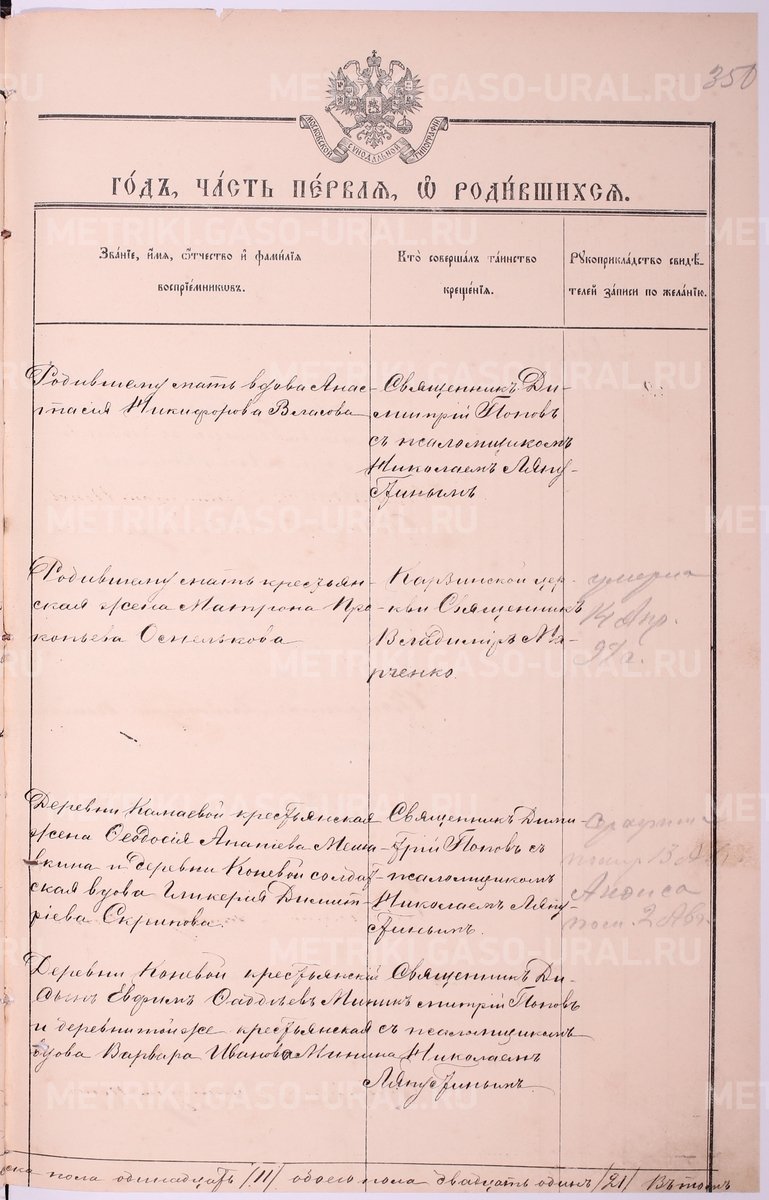 350
МОСКОВСКОЙ СѴНОДАЛЬНОЙ ТИПОГРАФІИ
ГО́ДЪ, ЧА́СТЬ ПЕ́РВАЯ, Ѿ РОДИ́ВШИХСЯ.
Зва́нїе, и҆́мя, ѻ҆́тчество и҆ фами́лїя
воспрїе́мникѡвъ.
Кто̀ соверша́лъ та́инство
креще́нїя.
Рꙋкоприкла́дство свидѣ́-
телей за́писи по жела́нїю.
Родившему мать вдова Анас-
тасія Никифорова Власова
Священникъ Ди-
митрій Поповъ
съ псаломщикомъ
Николаемъ Ляпу-
стинымъ.
Родившему мать крестьян-
ская жена Матрона Про
копьева
Карзинской цер-
кви Священникъ
Владиміръ
умерла
14 Апр.
97 г.
Деревни Камаевой крестьянская
жена Ѳеодосія Ананіева
и деревни Коневой солдат-
ская вдова Гликерія Димит-
ріева
Священникъ Дими-
трій Поповъ съ
псаломщикомъ
Николаемъ Ляпу-
стинымъ.
Анѳиса
2 Авг
Деревни Коневой крестьянскій
сынъ Евфимъ
и деревни той же крестьянская
вдова Варвара Иванова Минина
Священникъ Ди-
митрій Поповъ
съ псаломщикомъ
Николаемъ
Ляпустинымъ.
пола одинадцать /11/ обоего пола двадцать одинъ /21/ Въ томъ
METRIKI.GASO-URAL.RU